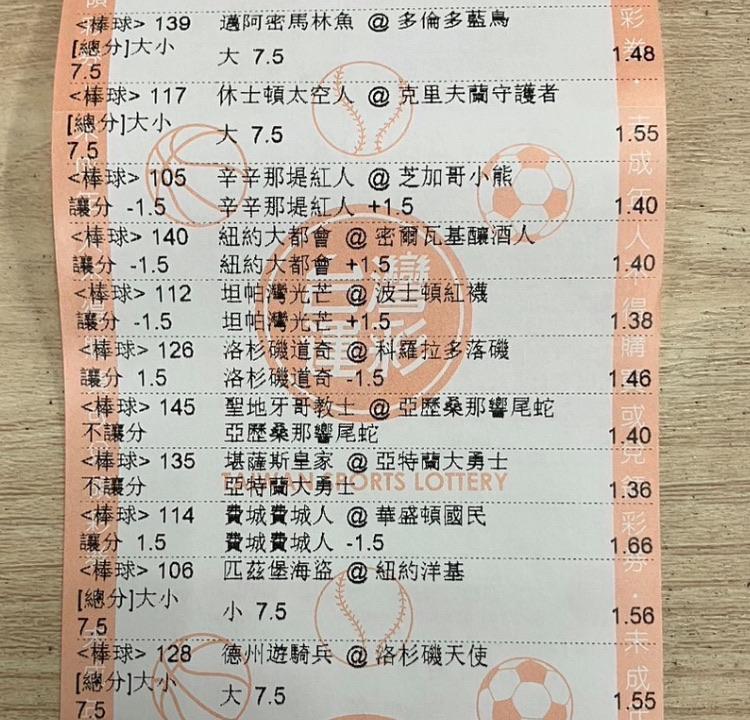 <棒球> 139 邁阿密馬林魚 @ 多倫多藍鳥
[總分]大小 7.5 大 7.5 1.48
<棒球> 117 休士頓太空人 @ 克里夫蘭守護者
[總分]大小 7.5 大 7.5 1.55
<棒球> 105 辛辛那堤紅人 @ 芝加哥小熊
讓分 -1.5 辛辛那堤紅人 +1.5 1.40
<棒球> 140 紐約大都會 @ 密爾瓦基釀酒人
讓分 -1.5 紐約大都會 +1.5 1.40
<棒球> 112 坦帕灣光芒 @ 波士頓紅襪
讓分 -1.5 坦帕灣光芒 +1.5 1.38
<棒球> 126 洛杉磯道奇 @ 科羅拉多落磯
讓分 1.5 洛杉磯道奇 -1.5 1.46
<棒球> 145 聖地牙哥教士 @ 亞歷桑那響尾蛇
不讓分 亞歷桑那響尾蛇 1.40
<棒球> 135 堪薩斯皇家 @ 亞特蘭大勇士
不讓分 亞特蘭大勇士 1.36
TAIWAN SPORTS LOTTERY
<棒球> 114 費城費城人 @ 華盛頓國民
讓分 1.5 費城費城人 -1.5 1.66
<棒球> 106 匹茲堡海盜 @ 紐約洋基
[總分]大小 7.5 小 7.5 1.56
<棒球> 128 德州遊騎兵 @ 洛杉磯天使
[總分]大小 7.5 大 7.5 1.55
台灣
運彩
彩券・未成年人不得購買或兌領彩券・未成